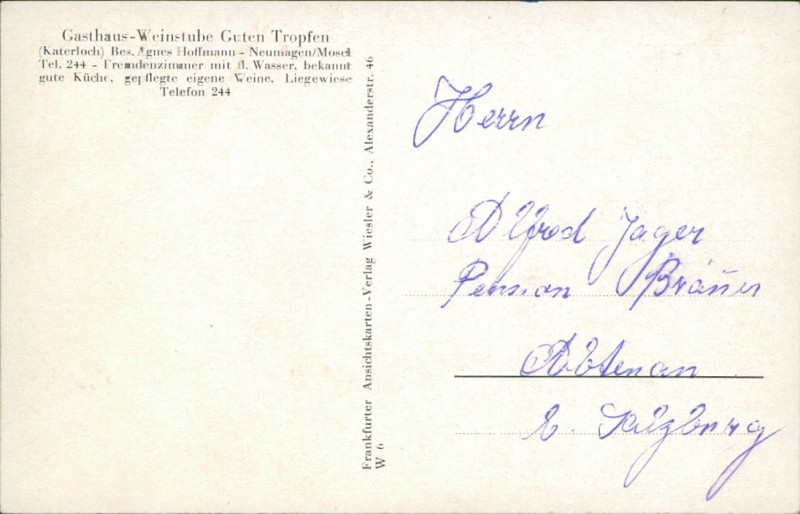 Gasthaus-Weinstube Guten Tropfen
(Katerloch) Bes. Agnes Hoffmann - Neumagen/Mosel
Tel. 244 - Fremdenzimmer mit fl. Wasser, bekannt
gute Küche, gepflegte eigene Weine, Liegewiese
Telefon 244
Frankfurter Ansichtskarten-Verlag Wiesler & Co., Alexanderstr. 46
W 6
Herrn
Alfred Jager
Pension Bräuer
Abtenau
b. Salzburg